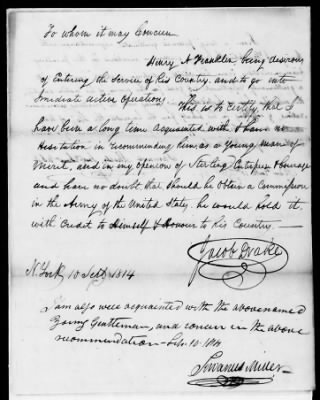 To whom it may Concern
Henry A Franklin being desirous
of Entering the Service of his Country and to go into
Imediate active Operations This is to Certify that I
have been a long time Acquainted with & have no
Hesitation in recommending him, as a Young man of
Merit, and in my opinion of Sterling Enterprise & Courage
and have no doubt that should he Obtain a Commission
in the Army of the United States, he would hold it
with Credit to Himself & Honour to his Country.
Jacob Drake
N. York 10 Sept 1814
I am also well acquainted with the abovenamed
Young Gentleman, and concur in the above
recommendation - Sep. 10. 1814
Miller